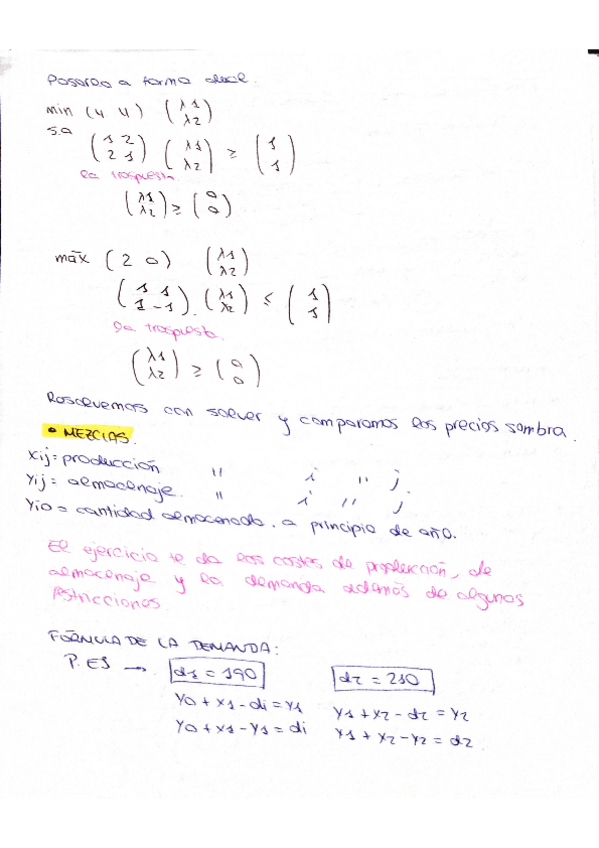 Pasarlo a forma dual.
min (4 4) (λ1 λ2)
s.a (1 2 2 1) (λ1 λ2) ≥ (1 1)
la traspuesta
(λ1 λ2) ≥ (0 0)
máx (2 0) (λ1 λ2)
(1 1 1 -1) . (λ1 λ2) ≤ (1 1)
la traspuesta.
(λ1 λ2) ≥ (0 0)
Resolvemos con solver y comparamos los precios sombra.
• MEZCLAS.
Xij = producción " i " j.
Yij = almacenaje. " i " j
Yi0 = cantidad almacenada. a principio de año.
El ejercicio te da los costes de producción, de
almacenaje y la demanda además de algunas
restricciones.
FÓRMULA DE LA DEMANDA:
P. EJ → d1 = 190 d2 = 210
Y0 + X1 - di = Y1 Y1 + X2 - d2 = Y2
Y0 + X1 - Y1 = di Y1 + X2 - Y2 = d2